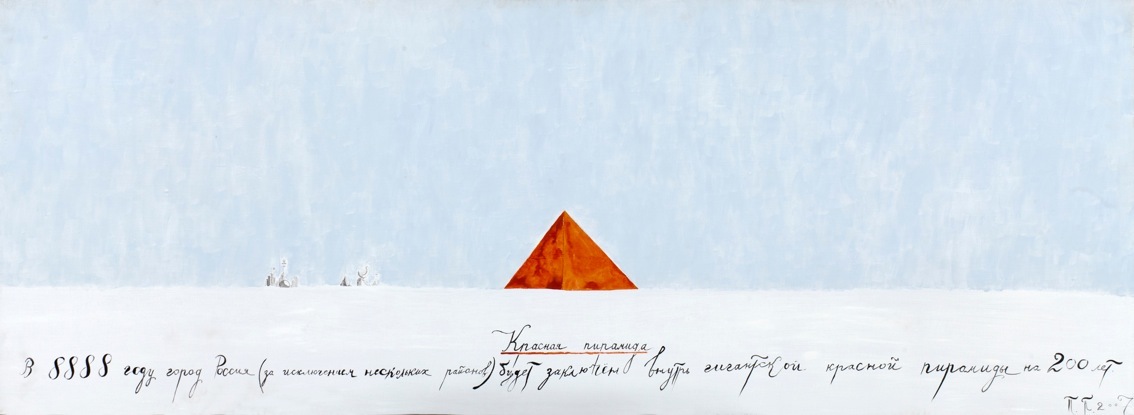 Красная пирамида
В 8888 году город Россия (за исключением нескольких районов) будет заключен внутри гигантской красной пирамиды на 200 лет
П П. 2007